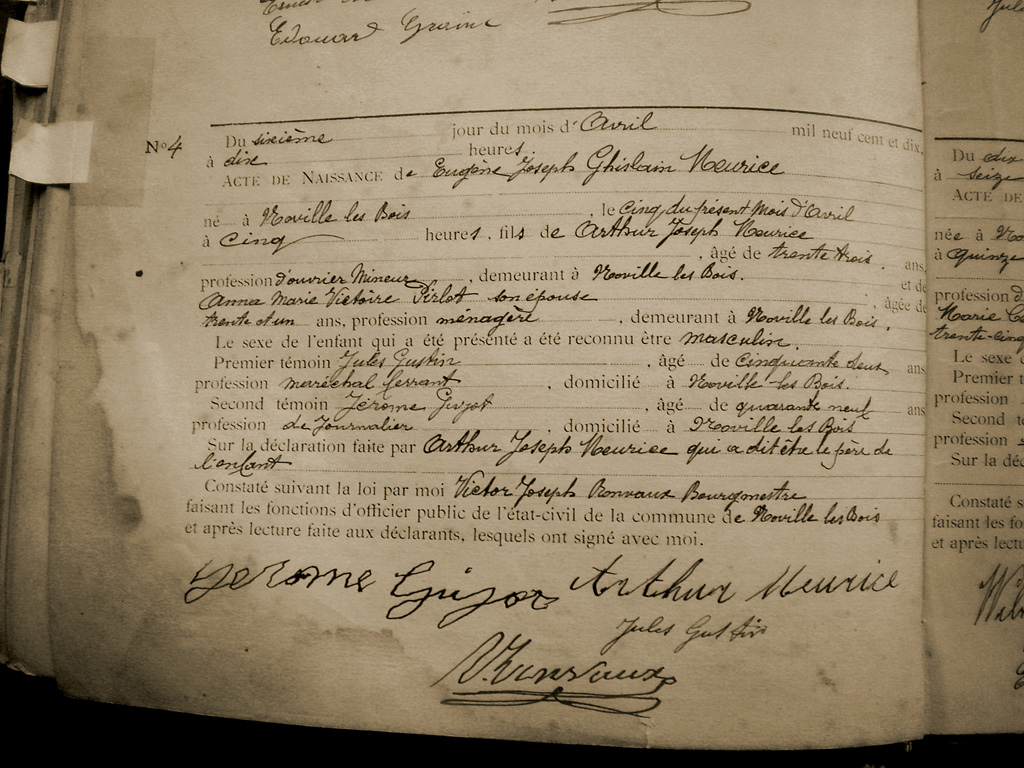 Edouard
Nº 4 Du sixième jour du mois d'Avril mil neuf cent et dix,
à dix heures.
ACTE DE NAISSANCE de Eugène Joseph Ghislain Meurice
né à Noville les Bois, le Cinq du présent Mois d'Avril
à Cinq heures, fils de Arthur Joseph Meurice
, âgé de trente trois. ans,
profession d'ouvrier Mineur, demeurant à Noville les Bois. et de
Anna Marie Victoire Pirlot son épouse, âgée de
trente et un ans, profession ménagère, demeurant à Noville les Bois.
Le sexe de l'enfant qui a été présenté a été reconnu être masculin.
Premier témoin Jules Gustin, âgé de cinquante deux ans
profession maréchal ferrant, domicilié à Noville-les-Bois.
Second témoin Jérome Guyot, âgé de quarante neuf ans
profession de Journalier, domicilié à Noville les Bois
Sur la déclaration faite par Arthur Joseph Meurice qui a dit être le père de
l'enfant
Constaté suivant la loi par moi Victor Joseph Ronvaux Bourgmestre
faisant les fonctions d'officier public de l'état-civil de la commune de Noville les Bois
et après lecture faite aux déclarants, lesquels ont signé avec moi.
Jerome Guijot Arthur Meurice
Jules Gustin
V. Ronvaux
Jul
Du dix
à seize
ACTE DE
née à No
à quinze
profession d
Marie C
trente-cinq
Le sexe
Premier t
profession
Second t
profession
Sur la déc
Constaté s
faisant les fo
et après lectu